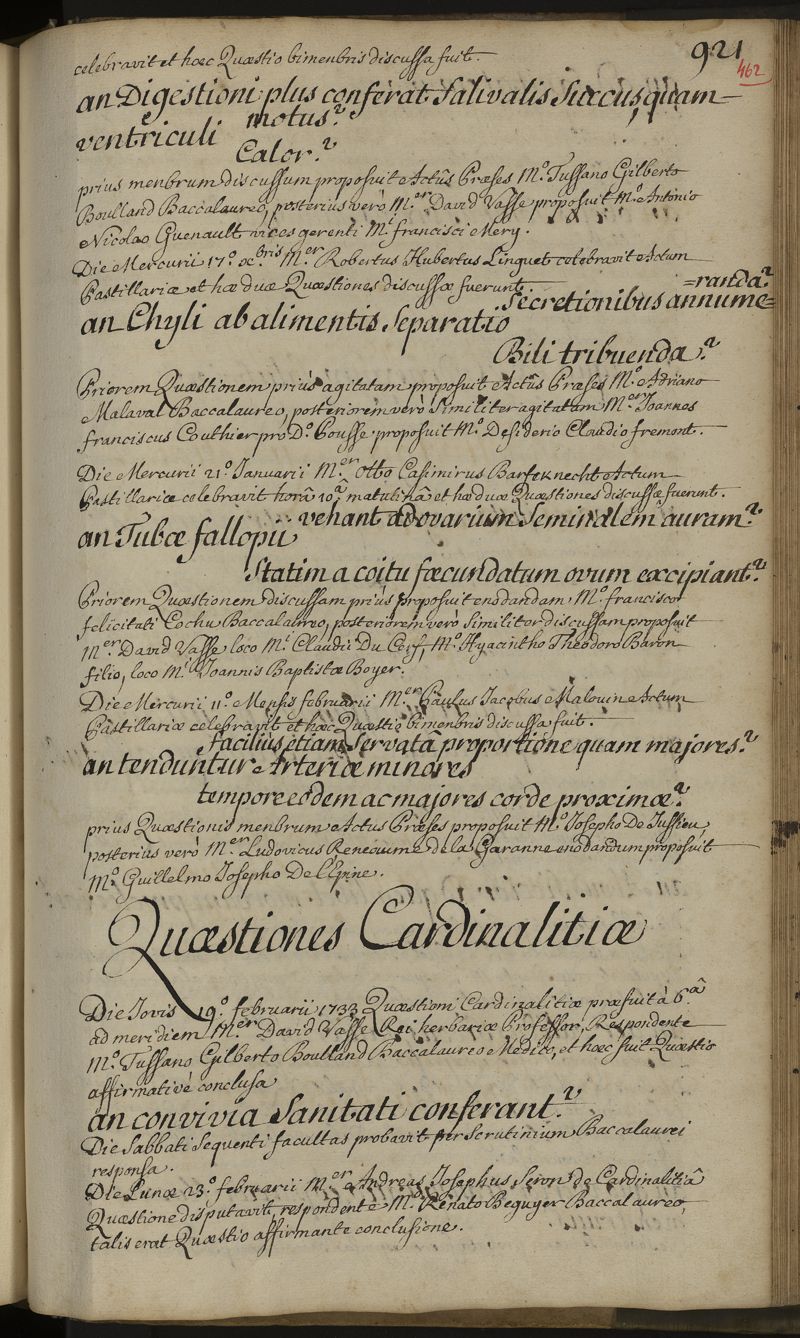 921
462
celebravit et hæc Quæstio bimenbris discussa fuit.
an Digestioni plus conferat Salivalis Succus, quam
ventriculi motus?
Calor?
prius menbrum discussum proposuit Actûs Præses M.º Tussano Gilberto
Boulland Baccalaureo, posterius verò M.er David Vasse proposuit M.º Antonio
Nicolao Guenault vices gerenti M.i francisci Mery.
Die Mercurii 17.º xc.bris M.er Robertus Hubertus Linguet celebravit Actum
Pastillariæ et hæ duæ Quæstiones discussæ fuerunt.
Secretionibus annume=
=randa?
an Chyli ab alimentis Separatio
Bili tribuenda?
Priorem Quæstionem priùs agitatam proposuit Actûs Præses M.º Adriano
Malaval Baccalaureo, posteriorem verò Similiter agitatam M.er Joannes
franciscus Couthier pro D.º Pousse proposuit M.º Desiderio Claudio fremont.
Die Mercurii 21.º Januarii M.er Otto Casimirus Barfeknecht Actum
Pastillariæ celebravit horâ 10.â matutinâ et hæ duæ Quæstiones discussæ fuerunt.
vehant ad ovarium Seminalem auram?
an Tubæ fallopii
Statim a coitu fæcundatum ovum excipiant?
Priorem Quæstionem discussam priùs proposuit enodandam M.º francisco
felicitati Cochu Baccalaureo, posteriorem verò Similiter discussam proposuit
M.er David Vasse loco M.i Claudii Du Cerf, M.º Hyacintho Theodoro Baron
filio, loco M.i Joannis Baptistæ Boyer.
Die Mercurii 11.º Mensis februarii M.er Paulus Jacobus Malouin Actum
Pastillariæ celebravit et hæc Quæstio bimenbris discussa fuit.
facilius etiam Servatâ proportione quam majores?
an tenduntur Arteriæ minores
tempore eodem ac majores corde proximæ?
prius Quæstionis menbrum Actus Præses proposuit M.º Josepho De Jussieu,
posterius verò M.er Ludovicus Reneaume de la Garanne enodandum proposuit
M.º Guillelmo Josepho De L'Epine.
Quæstiones Cardinalitiæ
Die Jovis 19.º februarii 1733 Quæstioni Cardinalitiæ præfuit à 6.â
ad meridiem M.er David Vasse Rei herbariæ Professor, Respondente
M.º Tussano Gilberto Boulland Baccalaureo Medico, et hæc fuit Quæstio
affirmativè conclusa
an convivia Sanitati conferant?
Die Sabbati Sequenti facultas probavit per Scrutinium Baccalaurei
responsa.
Die Lunæ 23.º februarii M.er Andreas Josephus Seron de Cardinalitiâ
Quæstione disputavit, respondente M.º Renato Beguyer Baccalaureo,
talis erat Quæstio affirmante conclusione.